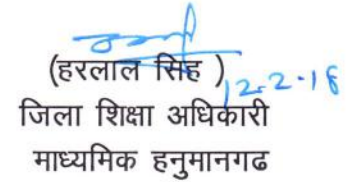 (हरलाल सिंह )
12-2-18
जिला शिक्षा अधिकारी
माध्यमिक हनुमानगढ